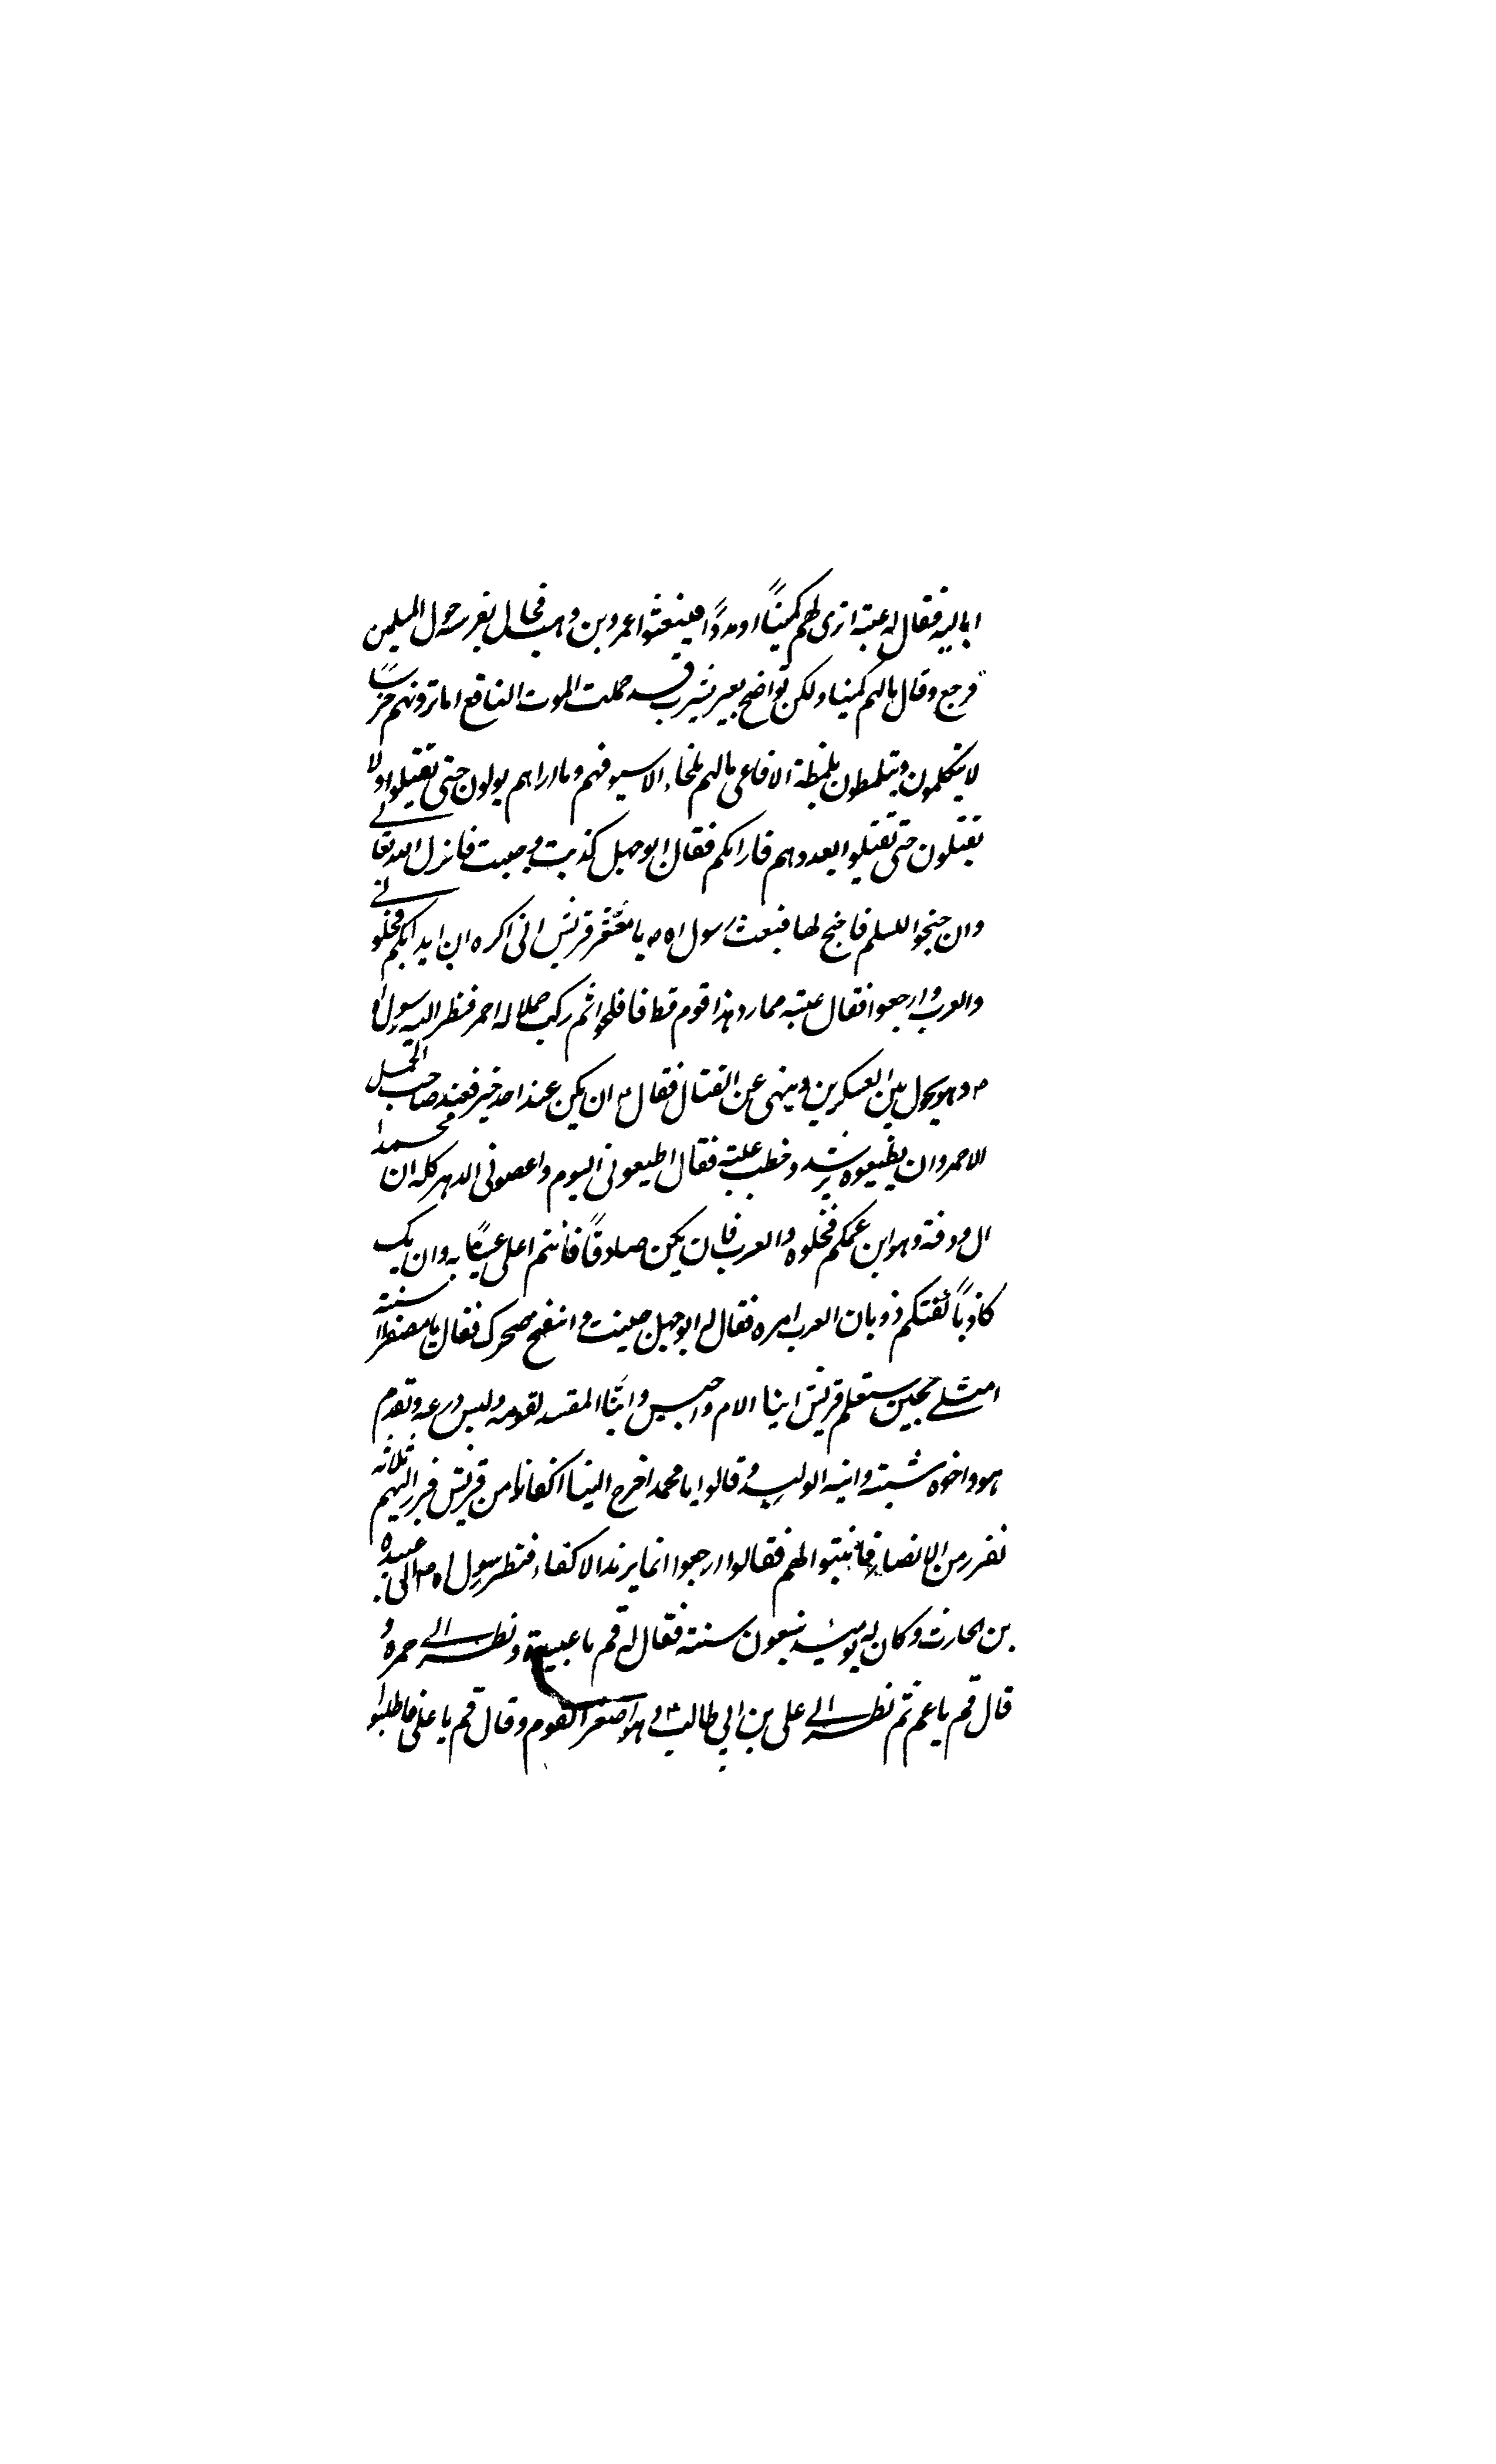 اباليه فقال له عتبة ازى لهم كميناً او مدداً فبعثوا عمرو بن وهب فجال بفرسه حول المسلمين
فرجع وقال مالهم كمينا ولكن نواضح يثرب قد حملت الموت الناقع اما ترونهم خرساً
لا يتكلمون ويتلمظون تلمظة الافاعى مالهم ملجاء الا سيوفهم وما اراهم يولون حتى تقتلوا ولا
تقتلون حتى تقتلوا بعددهم فارائكم فقال ابو جهل كذبت وجبنت فانزل الله تعالى
وان جنحوا للسلم فاجنح لها فبعث رسول الله ص يا معشر قريش انى اكره ان ابدائكم فخلونى
والعرب وارجعوا فقال عتبة ما رد هذا قوم قط فافلحوا ثم ركب جملا له احمر فنظر اليه رسول الله
ص وهو يجول بين العسكرين وينهى عن القتال فقال ص ان يكن عند احد خير فعند صاحب الجمل
الاحمر وان يطيعوه يرشدو وخطب عتبة فقال اطيعونى اليوم واعصونى الدهر كله ان محمدا
ال وذمة وهو ابن عمكم فخلوه والعرب فان يكن صادقاً فانتم اعلى عيناً به وان يك
كاذباً كفتكم ذوبان العرب امره فقال له ابو جهل جبنت وانتفخ سحرك فقال يا مصفر استه
امثلى يجبن ستعلم قريش اينا الام واجبن واينا المفسد لقومه ولبس درعه وتقدم
هو واخوه شيبة وابنه الوليد وقالوا يا محمد اخرج الينا اكفائنا من قريش فبرز اليهم ثلاثة
نفر من الانصار فانتسبوا لهم فقالوا ارجعوا انما نريد الاكفاء فنظر رسول الله ص الى عبيدة
بن الحارث وكان له يومئذ سبعون سنة فقال له قم يا عبيدة ونظر الى حمزه و
قال قم يا عم ثم نظر الى على بن ابى طالب ع وهو اصغر القوم وقال قم يا على فاطلبوا